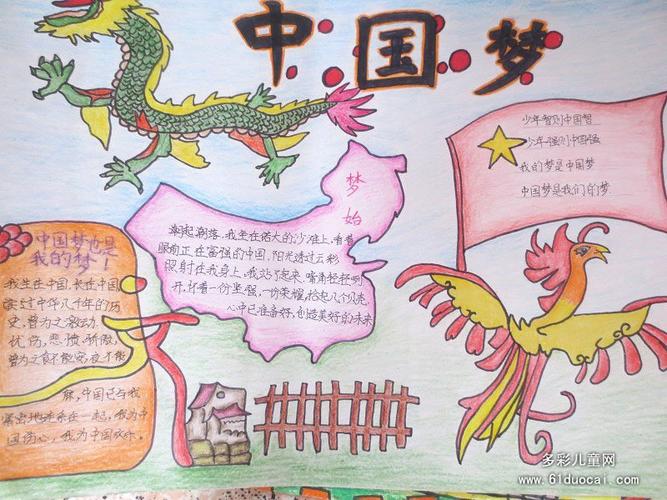 中国梦
少年智则中国智
少年强则中国强
我的梦是中国梦
中国梦是我们的梦
梦始
潮起潮落,我坐在偌大的沙滩上,看着
眼前正在富强的中国,阳光透过云彩
照射在我身上,我站了起来,嘴角轻轻咧
开,怀着一份坚强,一份荣耀,拾起几个贝壳
心中已准备好,创造美好的未来
中国梦也是
我的梦!
我生在中国,长在中国
读过中华几千年的历
史,曾为之激动、
忧伤,悲愤,骄傲,
曾为之食不能安,夜不能
寐,中国已与我
紧密地连系在一起,我为中
国伤心,我为中国欢乐。
多彩儿童网
www.61duocai.com